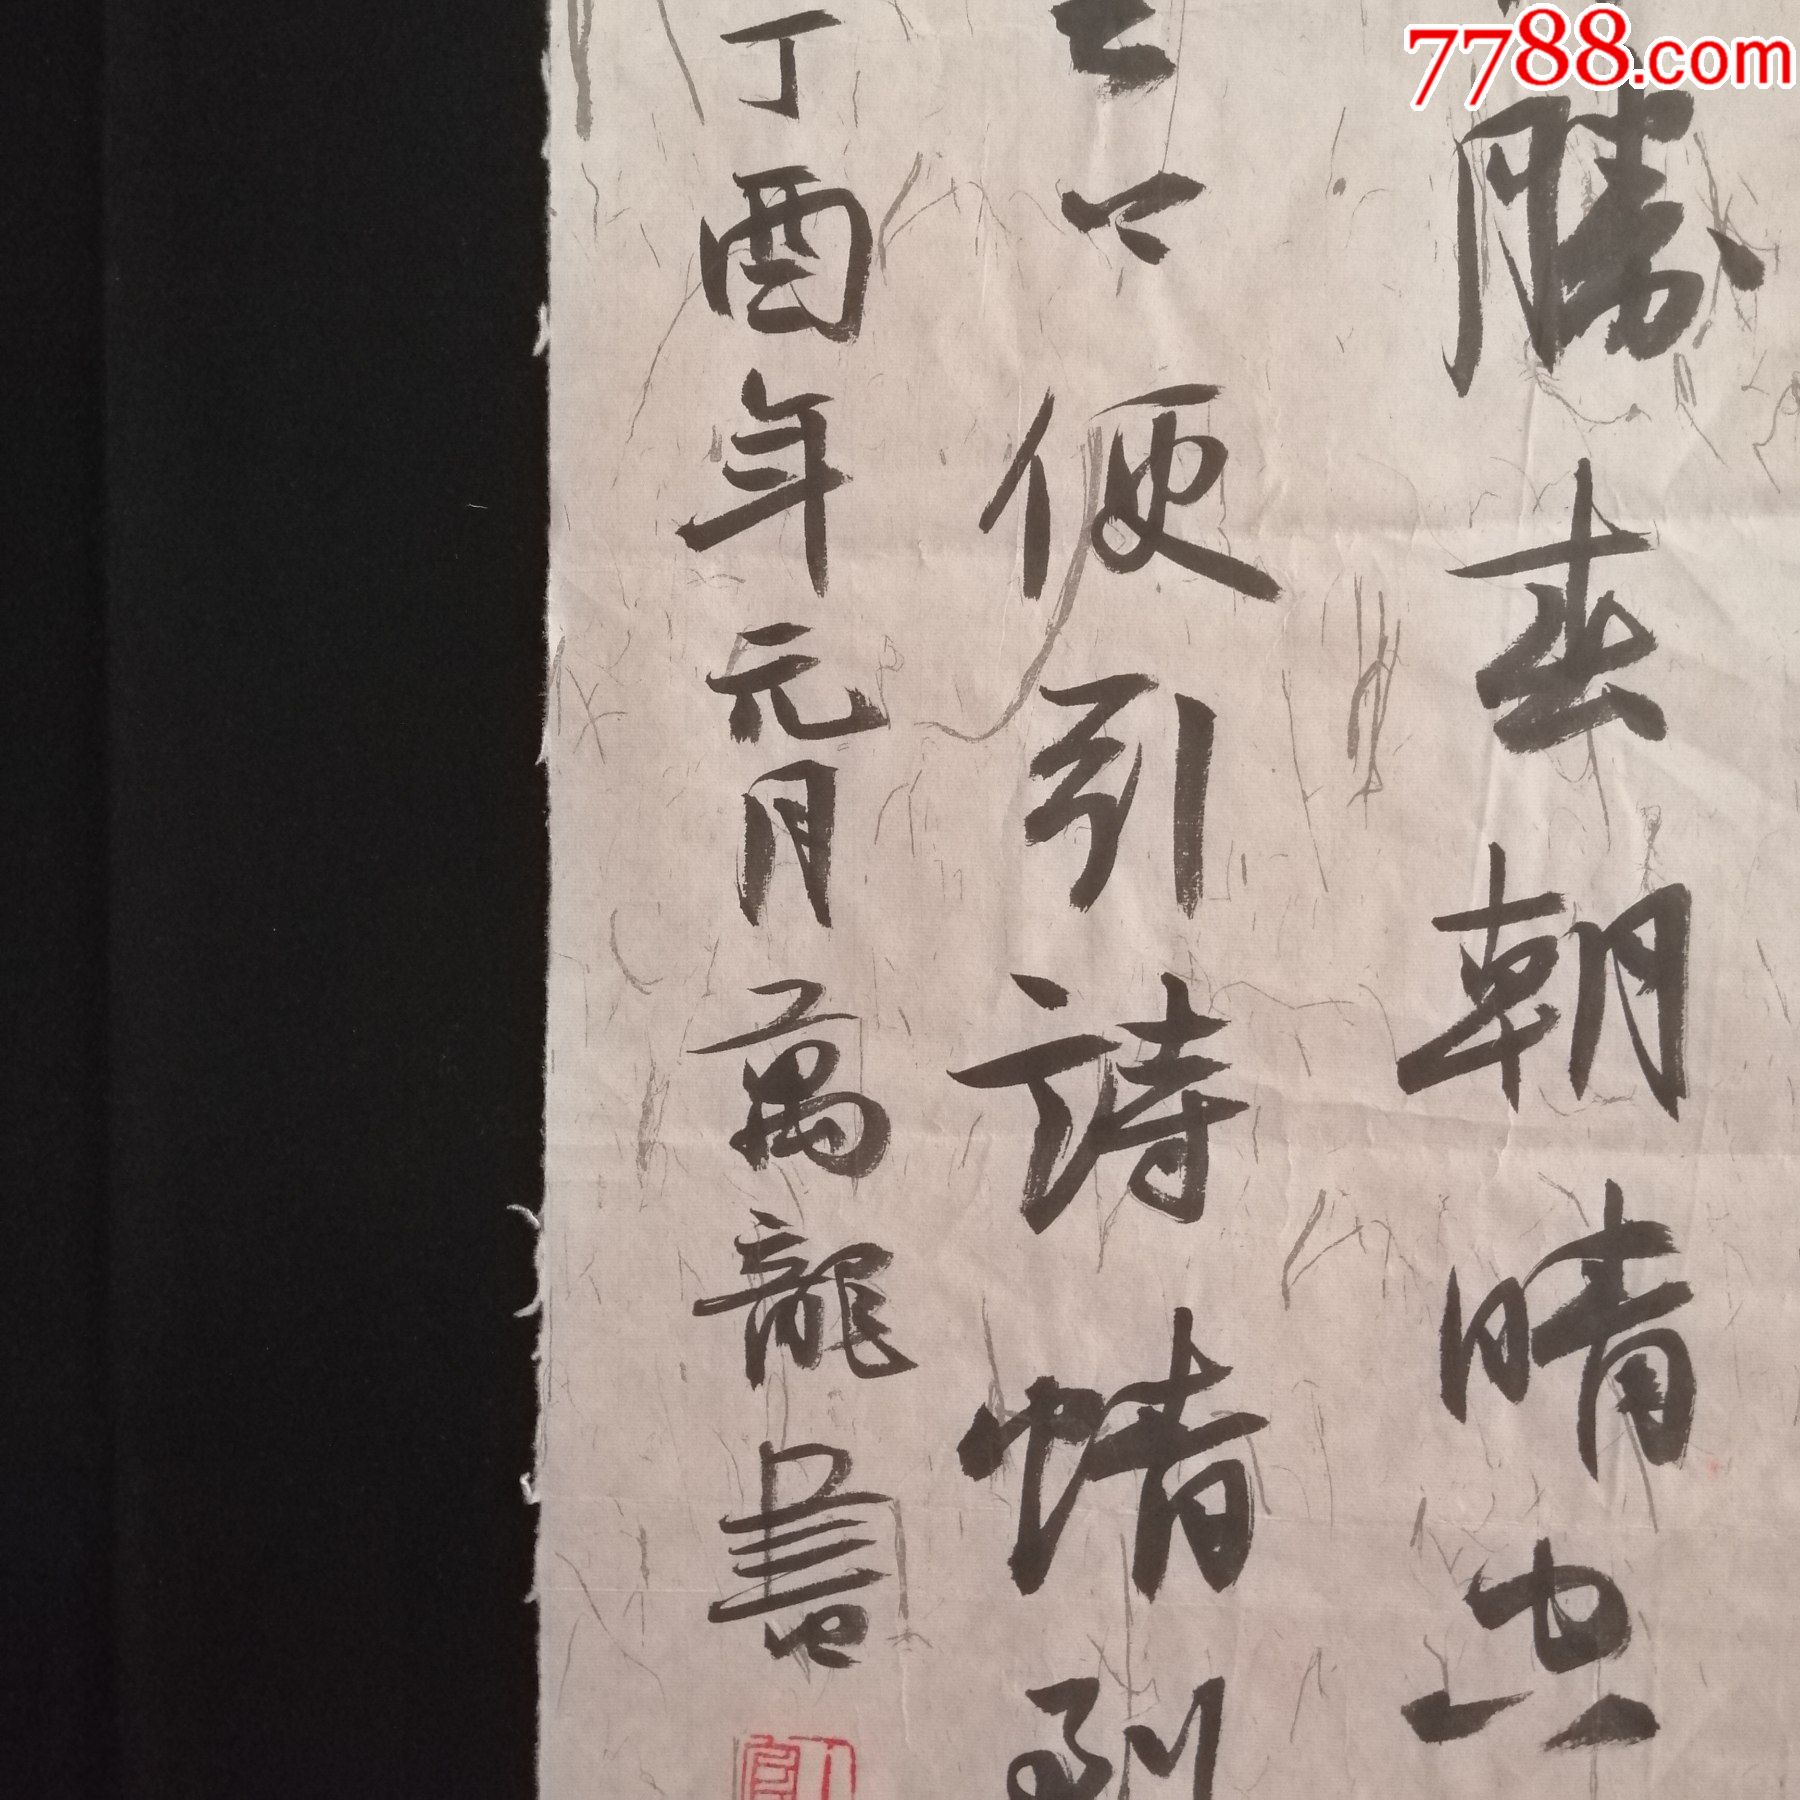 7788.com
勝春朝晴空
便引詩情到
丁酉年元月萬龍書